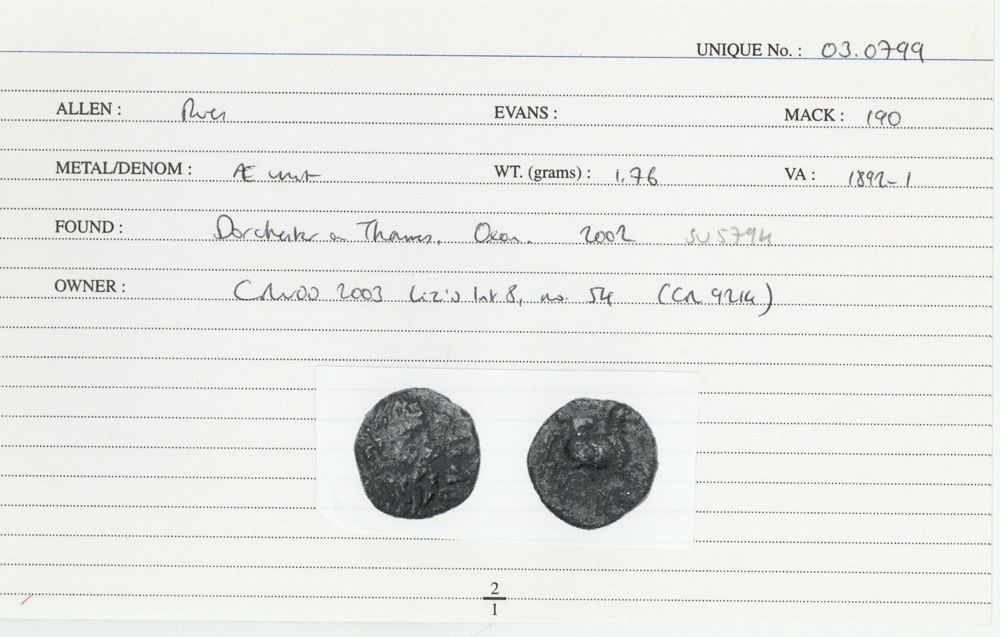 UNIQUE No. : 03.0799
ALLEN : Rues EVANS : MACK : 190
METAL/DENOM : Æ unit WT. (grams) : 1.76 VA : 1892-1
FOUND : Dorchester on Thames, Oxon. 2002 SU5794
OWNER : 2003 Liz's list 8, no. 54 (CR 9214)
2
1